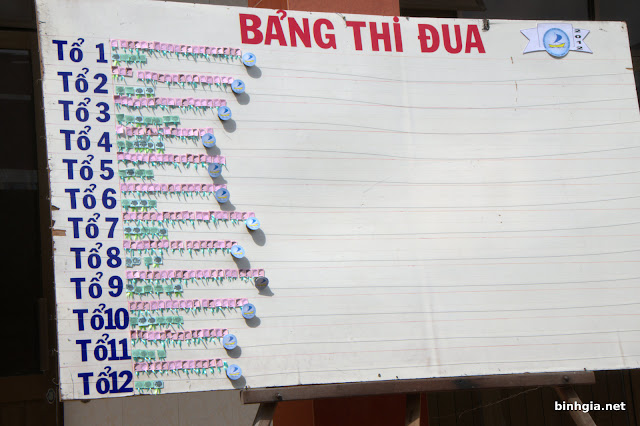 BẢNG THI ĐUA
Tổ 1
Tổ 2
Tổ 3
Tổ 4
Tổ 5
Tổ 6
Tổ 7
Tổ 8
Tổ 9
Tổ10
Tổ11
Tổ12
binhgia.net